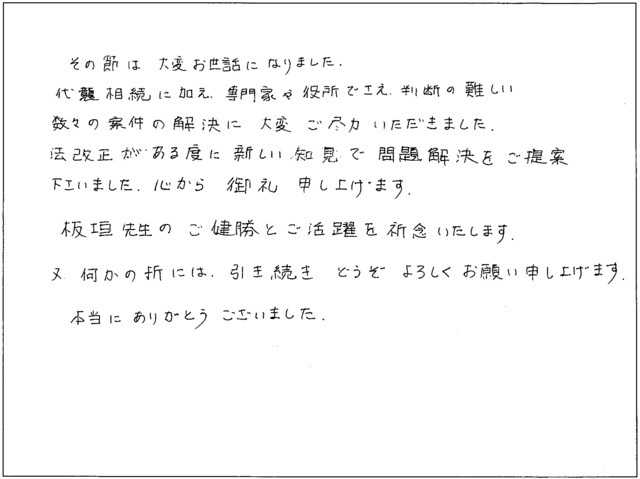 その節は 大変お世話になりました.
代襲相続に加え. 専門家や役所でさえ. 判断の難しい
数々の案件の解決に 大変 ご尽力いただきました.
法改正がある度に新しい知見で問題解決をご提案
下さいました. 心から 御礼 申し上げます.
板垣先生の ご健勝とご活躍を祈念いたします.
又 何かの折には. 引き続き どうぞ よろしくお願い申し上げます.
本当に ありがとう ございました.